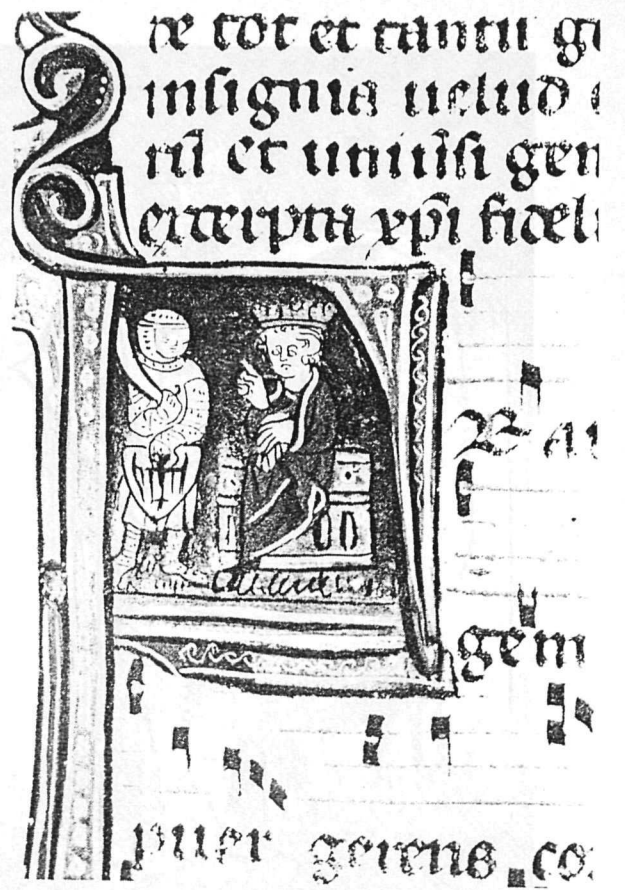 re tot et tantu
insignia uelud
et uniu̅si gen
excerpta xp̅i fidel
gem
puer gerens co